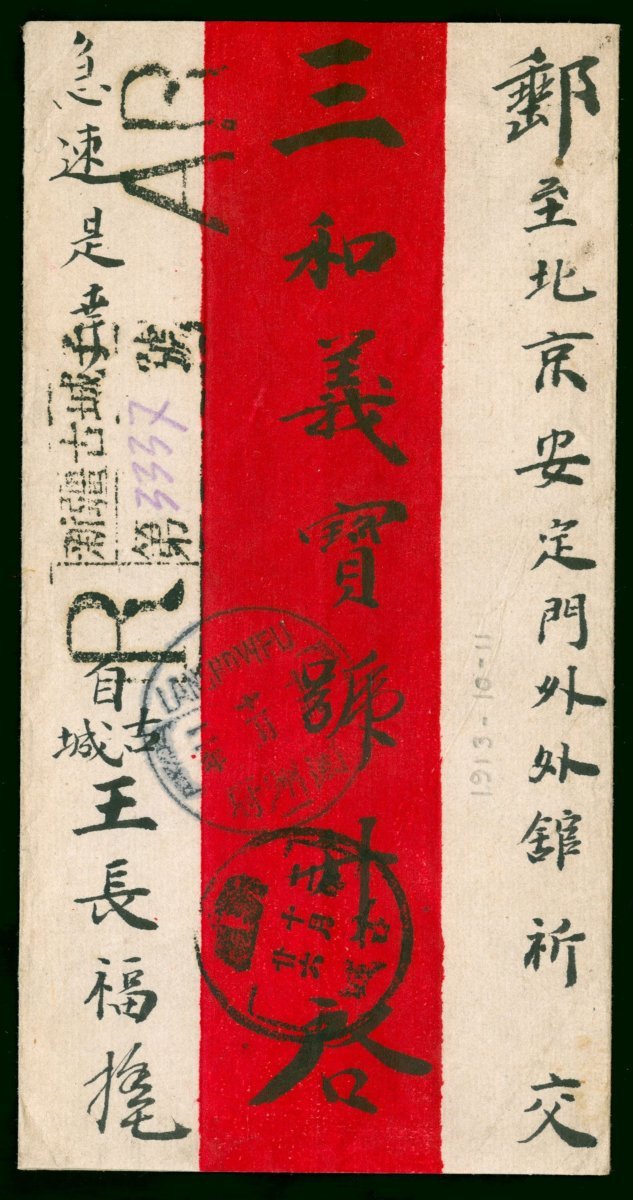 郵至北京安定門外外舘祈交
1913-10-11
三和義寶號升启
急速是幸
A.R.
新疆古城
第3337號
R
LANCHOWFU
蘭州府
自古城王長福